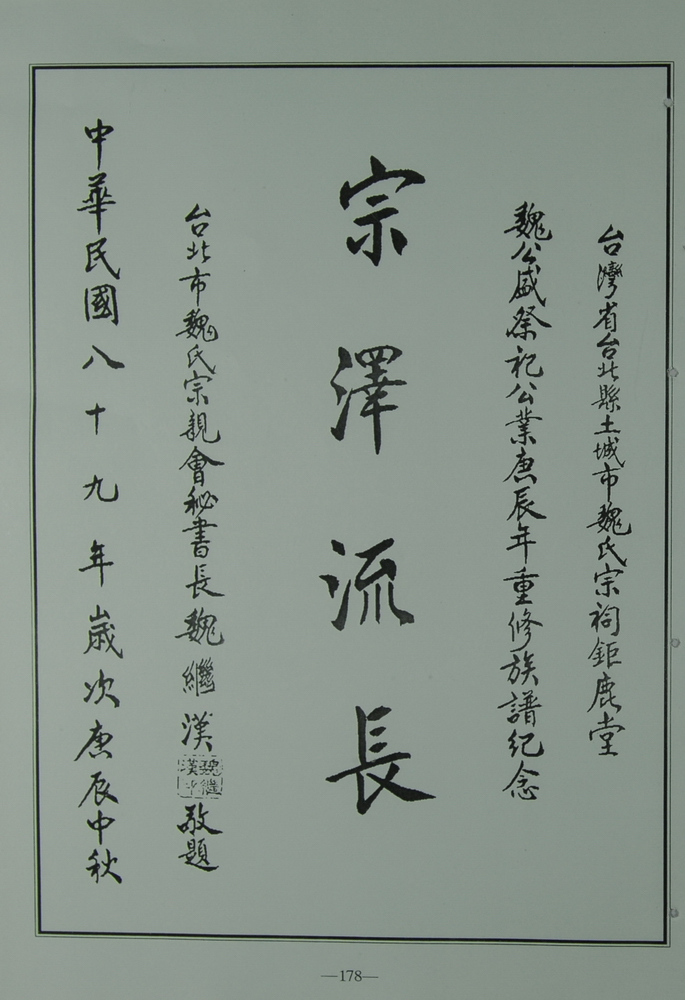 台灣省台北縣土城市魏氏宗祠鉅鹿堂
魏公盛祭祀公業庚辰年重修族譜紀念
宗澤流長
台北市魏氏宗親會秘書長魏繼漢敬題
中華民國八十九年歲次庚辰中秋
—178—